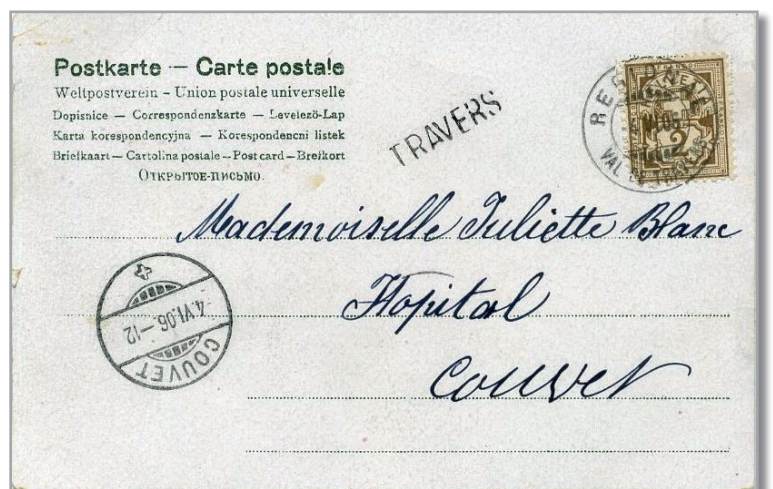 Postkarte — Carte postale
Weltpostverein – Union postale universelle
Dopisnice — Correspondenzkarte — Levelező-Lap
Karta korespondencyjna — Korespondencni listek
Briefkaart — Cartolina postale — Post card — Brefkort
ОТКРЫТОЕ-ПИСЬМО.
TRAVERS
REGIONAL
VAL DE TRAVERS
2
Mademoiselle Juliette Blanc
Hopital
Couvet
-4.VI.06.-12
COUVET